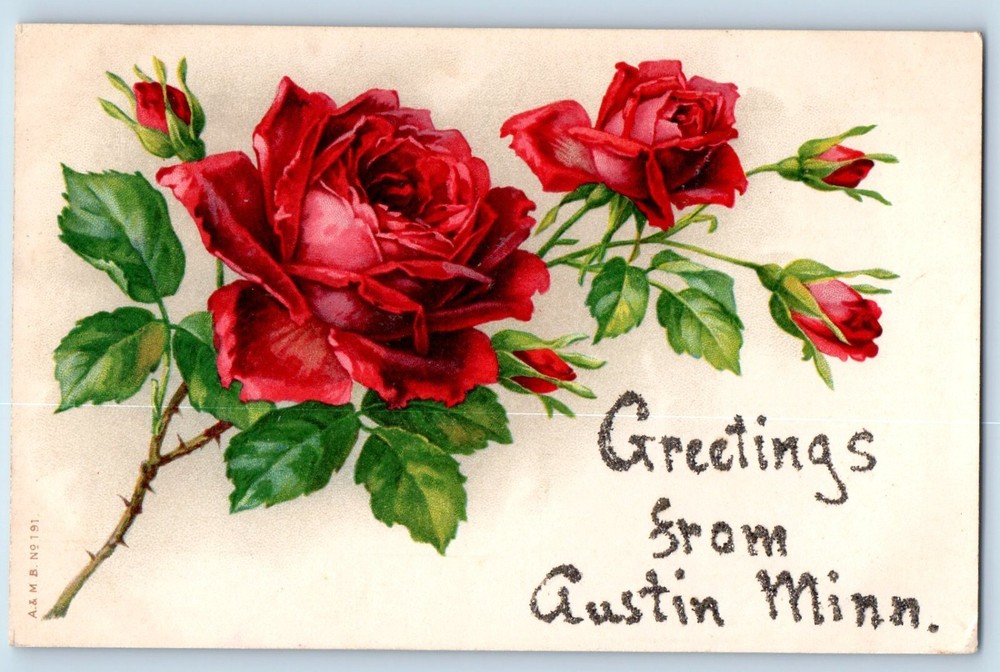 Greetings
from
Austin Minn.
A. & M. B. Nº 191